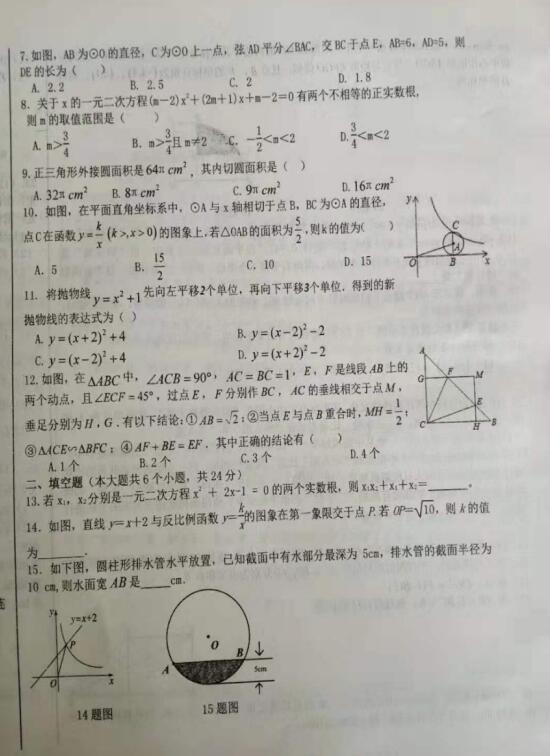 7.如图，AB为⊙O的直径，C为⊙O上一点，弦AD平分∠BAC，交BC于点E，AB=6，AD=5，则
DE的长为（ ）
A. 2.2 B. 2.5 C. 2 D. 1.8
8. 关于x的一元二次方程(m-2)x²+(2m+1)x+m-2=0有两个不相等的正实数根，
则m的取值范围是（ ）
A. m>3/4 B. m>3/4且m≠2 C. -1/2<m<2 D. 3/4<m<2
9.正三角形外接圆面积是64π cm²，其内切圆面积是（ ）
A. 32π cm² B. 8π cm² C. 9π cm² D. 16π cm²
10. 如图，在平面直角坐标系中，⊙A与x轴相切于点B，BC为⊙A的直径，
点C在函数y=k/x (k>,x>0)的图象上，若△OAB的面积为5/2，则k的值为( )
A. 5 B. 15/2 C. 10 D. 15
y
C
A
O B x
11. 将抛物线y=x²+1先向左平移2个单位，再向下平移3个单位．得到的新
抛物线的表达式为（ ）
A. y=(x+2)²+4 B. y=(x-2)²-2
C. y=(x-2)²+4 D. y=(x+2)²-2
12.如图，在△ABC中，∠ACB=90°，AC=BC=1，E，F是线段AB上的
两个动点，且∠ECF=45°，过点E，F分别作BC，AC的垂线相交于点M，
垂足分别为H，G．有以下结论：①AB=√2；②当点E与点B重合时，MH=1/2；
③△ACE∽△BFC；④AF+BE=EF．其中正确的结论有（ ）
A.1个 B.2个 C.3个 D.4个
A
G F M
E
C H B
二、填空题（本大题共6个小题，共24分）
13.若x₁，x₂分别是一元二次方程x² + 2x-1 = 0的两个实数根，则x₁x₂+x₁+x₂=______。
14. 如图，直线y=x+2与反比例函数y=k/x的图象在第一象限交于点P.若OP=√10，则k的值
为______．
15. 如下图，圆柱形排水管水平放置，已知截面中有水部分最深为 5cm，排水管的截面半径为
10 cm,则水面宽AB是____cm.
y
y=x+2
P
O x
14题图
O
A B
5cm
15题图